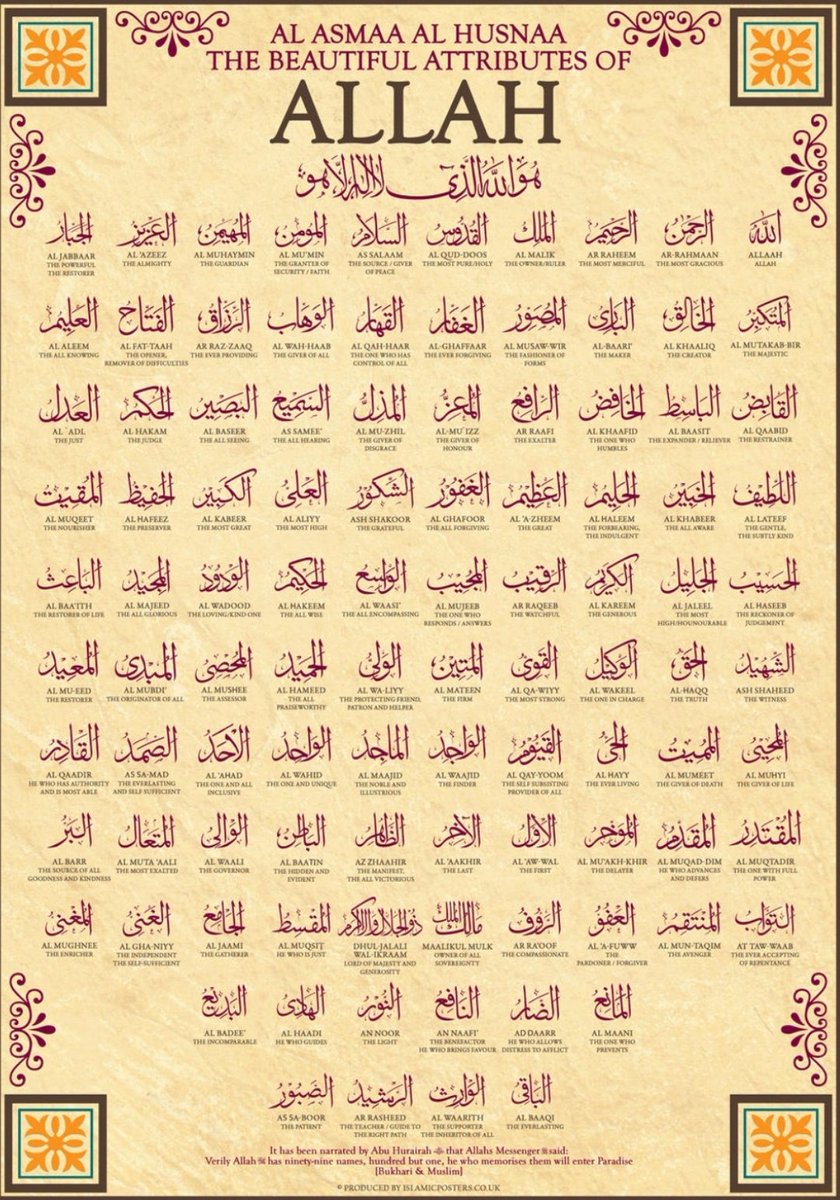 AL ASMAA AL HUSNAA
THE BEAUTIFUL ATTRIBUTES OF
ALLAH
هُوَ اللهُ الَّذِي لَا إِلٰهَ إِلَّا هُوَ
الله
ALLAAH
ALLAH
الرحمن
AR-RAHMAAN
THE MOST GRACIOUS
الرحيم
AR RAHEEM
THE MOST MERCIFUL
الملك
AL MALIK
THE OWNER/RULER
القدوس
AL QUD-DOOS
THE MOST PURE/HOLY
السلام
AS SALAAM
THE SOURCE / GIVER
OF PEACE
المؤمن
AL MU'MIN
THE GRANTER OF
SECURITY / FAITH
المهيمن
AL MUHAYMIN
THE GUARDIAN
العزيز
AL 'AZEEZ
THE ALMIGHTY
الجبار
AL JABBAAR
THE POWERFUL
THE RESTORER
المتكبر
AL MUTAKAB-BIR
THE MAJESTIC
الخالق
AL KHAALIQ
THE CREATOR
البارئ
AL-BAARI'
THE MAKER
المصور
AL MUSAW-WIR
THE FASHIONER OF
FORMS
الغفار
AL-GHAFFAAR
THE EVER FORGIVING
القهار
AL QAH-HAAR
THE ONE WHO HAS
CONTROL OF ALL
الوهاب
AL WAH-HAAB
THE GIVER OF ALL
الرزاق
AR RAZ-ZAAQ
THE EVER PROVIDING
الفتاح
AL FAT-TAAH
THE OPENER,
REMOVER OF DIFFICULTIES
العليم
AL ALEEM
THE ALL KNOWING
القابض
AL QAABID
THE RESTRAINER
الباسط
AL BAASIT
THE EXPANDER / RELIEVER
الخافض
AL KHAAFID
THE ONE WHO
HUMBLES
الرافع
AR RAAFI
THE EXALTER
المعز
AL-MU`IZZ
THE GIVER OF
HONOUR
المذل
AL MU-ZHIL
THE GIVER OF
DISGRACE
السميع
AS SAMEE'
THE ALL HEARING
البصير
AL BASEER
THE ALL SEEING
الحكم
AL HAKAM
THE JUDGE
العدل
AL `ADL
THE JUST
اللطيف
AL LATEEF
THE GENTLE,
THE SUBTLY KIND
الخبير
AL KHABEER
THE ALL AWARE
الحليم
AL HALEEM
THE FORBEARING,
THE INDULGENT
العظيم
AL 'A-ZHEEM
THE GREAT
الغفور
AL GHAFOOR
THE ALL FORGIVING
الشكور
ASH SHAKOOR
THE GRATEFUL
العلى
AL ALIYY
THE MOST HIGH
الكبير
AL KABEER
THE MOST GREAT
الحفيظ
AL HAFEEZ
THE PRESERVER
المقيت
AL MUQEET
THE NOURISHER
الحسيب
AL HASEEB
THE RECKONER OF
JUDGEMENT
الجليل
AL JALEEL
THE MOST
HIGH/HOUNOURABLE
الكريم
AL KAREEM
THE GENEROUS
الرقيب
AR RAQEEB
THE WATCHFUL
المجيب
AL MUJEEB
THE ONE WHO
RESPONDS / ANSWERS
الواسع
AL WAASI'
THE ALL ENCOMPASSING
الحكيم
AL HAKEEM
THE ALL WISE
الودود
AL WADOOD
THE LOVING/KIND ONE
المجيد
AL MAJEED
THE ALL GLORIOUS
الباعث
AL BAA'ITH
THE RESTORER OF LIFE
الشهيد
ASH SHAHEED
THE WITNESS
الحق
AL-HAQQ
THE TRUTH
الوكيل
AL WAKEEL
THE ONE IN CHARGE
القوى
AL QA-WIYY
THE MOST STRONG
المتين
AL MATEEN
THE FIRM
الولى
AL WA-LIYY
THE PROTECTING FRIEND,
PATRON AND HELPER
الحميد
AL HAMEED
THE ALL
PRAISEWORTHY
المحصى
AL MUSHEE
THE ASSESSOR
المبدئ
AL MUBDI'
THE ORIGINATOR OF ALL
المعيد
AL MU-EED
THE RESTORER
المحيى
AL MUHYI
THE GIVER OF LIFE
المميت
AL MUMEET
THE GIVER OF DEATH
الحى
AL HAYY
THE EVER LIVING
القيوم
AL QAY-YOOM
THE SELF SUBSISTING
PROVIDER OF ALL
الواجد
AL WAAJID
THE FINDER
الماجد
AL MAAJID
THE NOBLE AND
ILLUSTRIOUS
الواحد
AL WAHID
THE ONE AND UNIQUE
الأحد
AL 'AHAD
THE ONE AND ALL
INCLUSIVE
الصمد
AS SA-MAD
THE EVERLASTING
AND SELF SUFFICIENT
القادر
AL QAADIR
HE WHO HAS AUTHORITY
AND IS MOST ABLE
المقتدر
AL MUQTADIR
THE ONE WITH FULL
POWER
المقدم
AL MUQAD-DIM
HE WHO ADVANCES
AND DEFERS
المؤخر
AL MU'AKH-KHIR
THE DELAYER
الأول
AL 'AW-WAL
THE FIRST
الآخر
AL 'AAKHIR
THE LAST
الظاهر
AZ ZHAAHIR
THE MANIFEST,
THE ALL VICTORIOUS
الباطن
AL BAATIN
THE HIDDEN AND
EVIDENT
الوالى
AL WAALI
THE GOVERNOR
المتعال
AL MUTA 'AALI
THE MOST EXALTED
البر
AL BARR
THE SOURCE OF ALL
GOODNESS AND KINDNESS
التواب
AT TAW-WAAB
THE EVER ACCEPTING
OF REPENTANCE
المنتقم
AL MUN-TAQIM
THE AVENGER
العفو
AL 'A-FUWW
THE
PARDONER / FORGIVER
الرؤف
AR RA'OOF
THE COMPASSIONATE
مالك الملك
MAALIKUL MULK
OWNER OF ALL
SOVEREIGNTY
ذو الجلال والإكرام
DHUL-JALALI
WAL-IKRAAM
LORD OF MAJESTY AND
GENEROSITY
المقسط
AL MUQSIT
HE WHO IS JUST
الجامع
AL JAAMI
THE GATHERER
الغنى
AL GHA-NIYY
THE INDEPENDENT
THE SELF-SUFFICIENT
المغنى
AL MUGHNEE
THE ENRICHER
المانع
AL MAANI
THE ONE WHO
PREVENTS
الضار
AD DAARR
HE WHO ALLOWS
DISTRESS TO AFFLICT
النافع
AN NAAFI'
THE BENEFACTOR
HE WHO BRINGS FAVOUR
النور
AN NOOR
THE LIGHT
الهادى
AL HAADI
HE WHO GUIDES
البديع
AL BADEE'
THE INCOMPARABLE
الباقى
AL BAAQI
THE EVERLASTING
الوارث
AL WAARITH
THE SUPPORTER
THE INHERITOR OF ALL
الرشيد
AR RASHEED
THE TEACHER / GUIDE TO
THE RIGHT PATH
الصبور
AS SA-BOOR
THE PATIENT
It has been narrated by Abu Hurairah that Allahs Messenger ﷺ said:
Verily Allah has ninety-nine names, hundred but one, he who memorises them will enter Paradise
[Bukhari & Muslim]
© PRODUCED BY ISLAMICPOSTERS.CO.UK